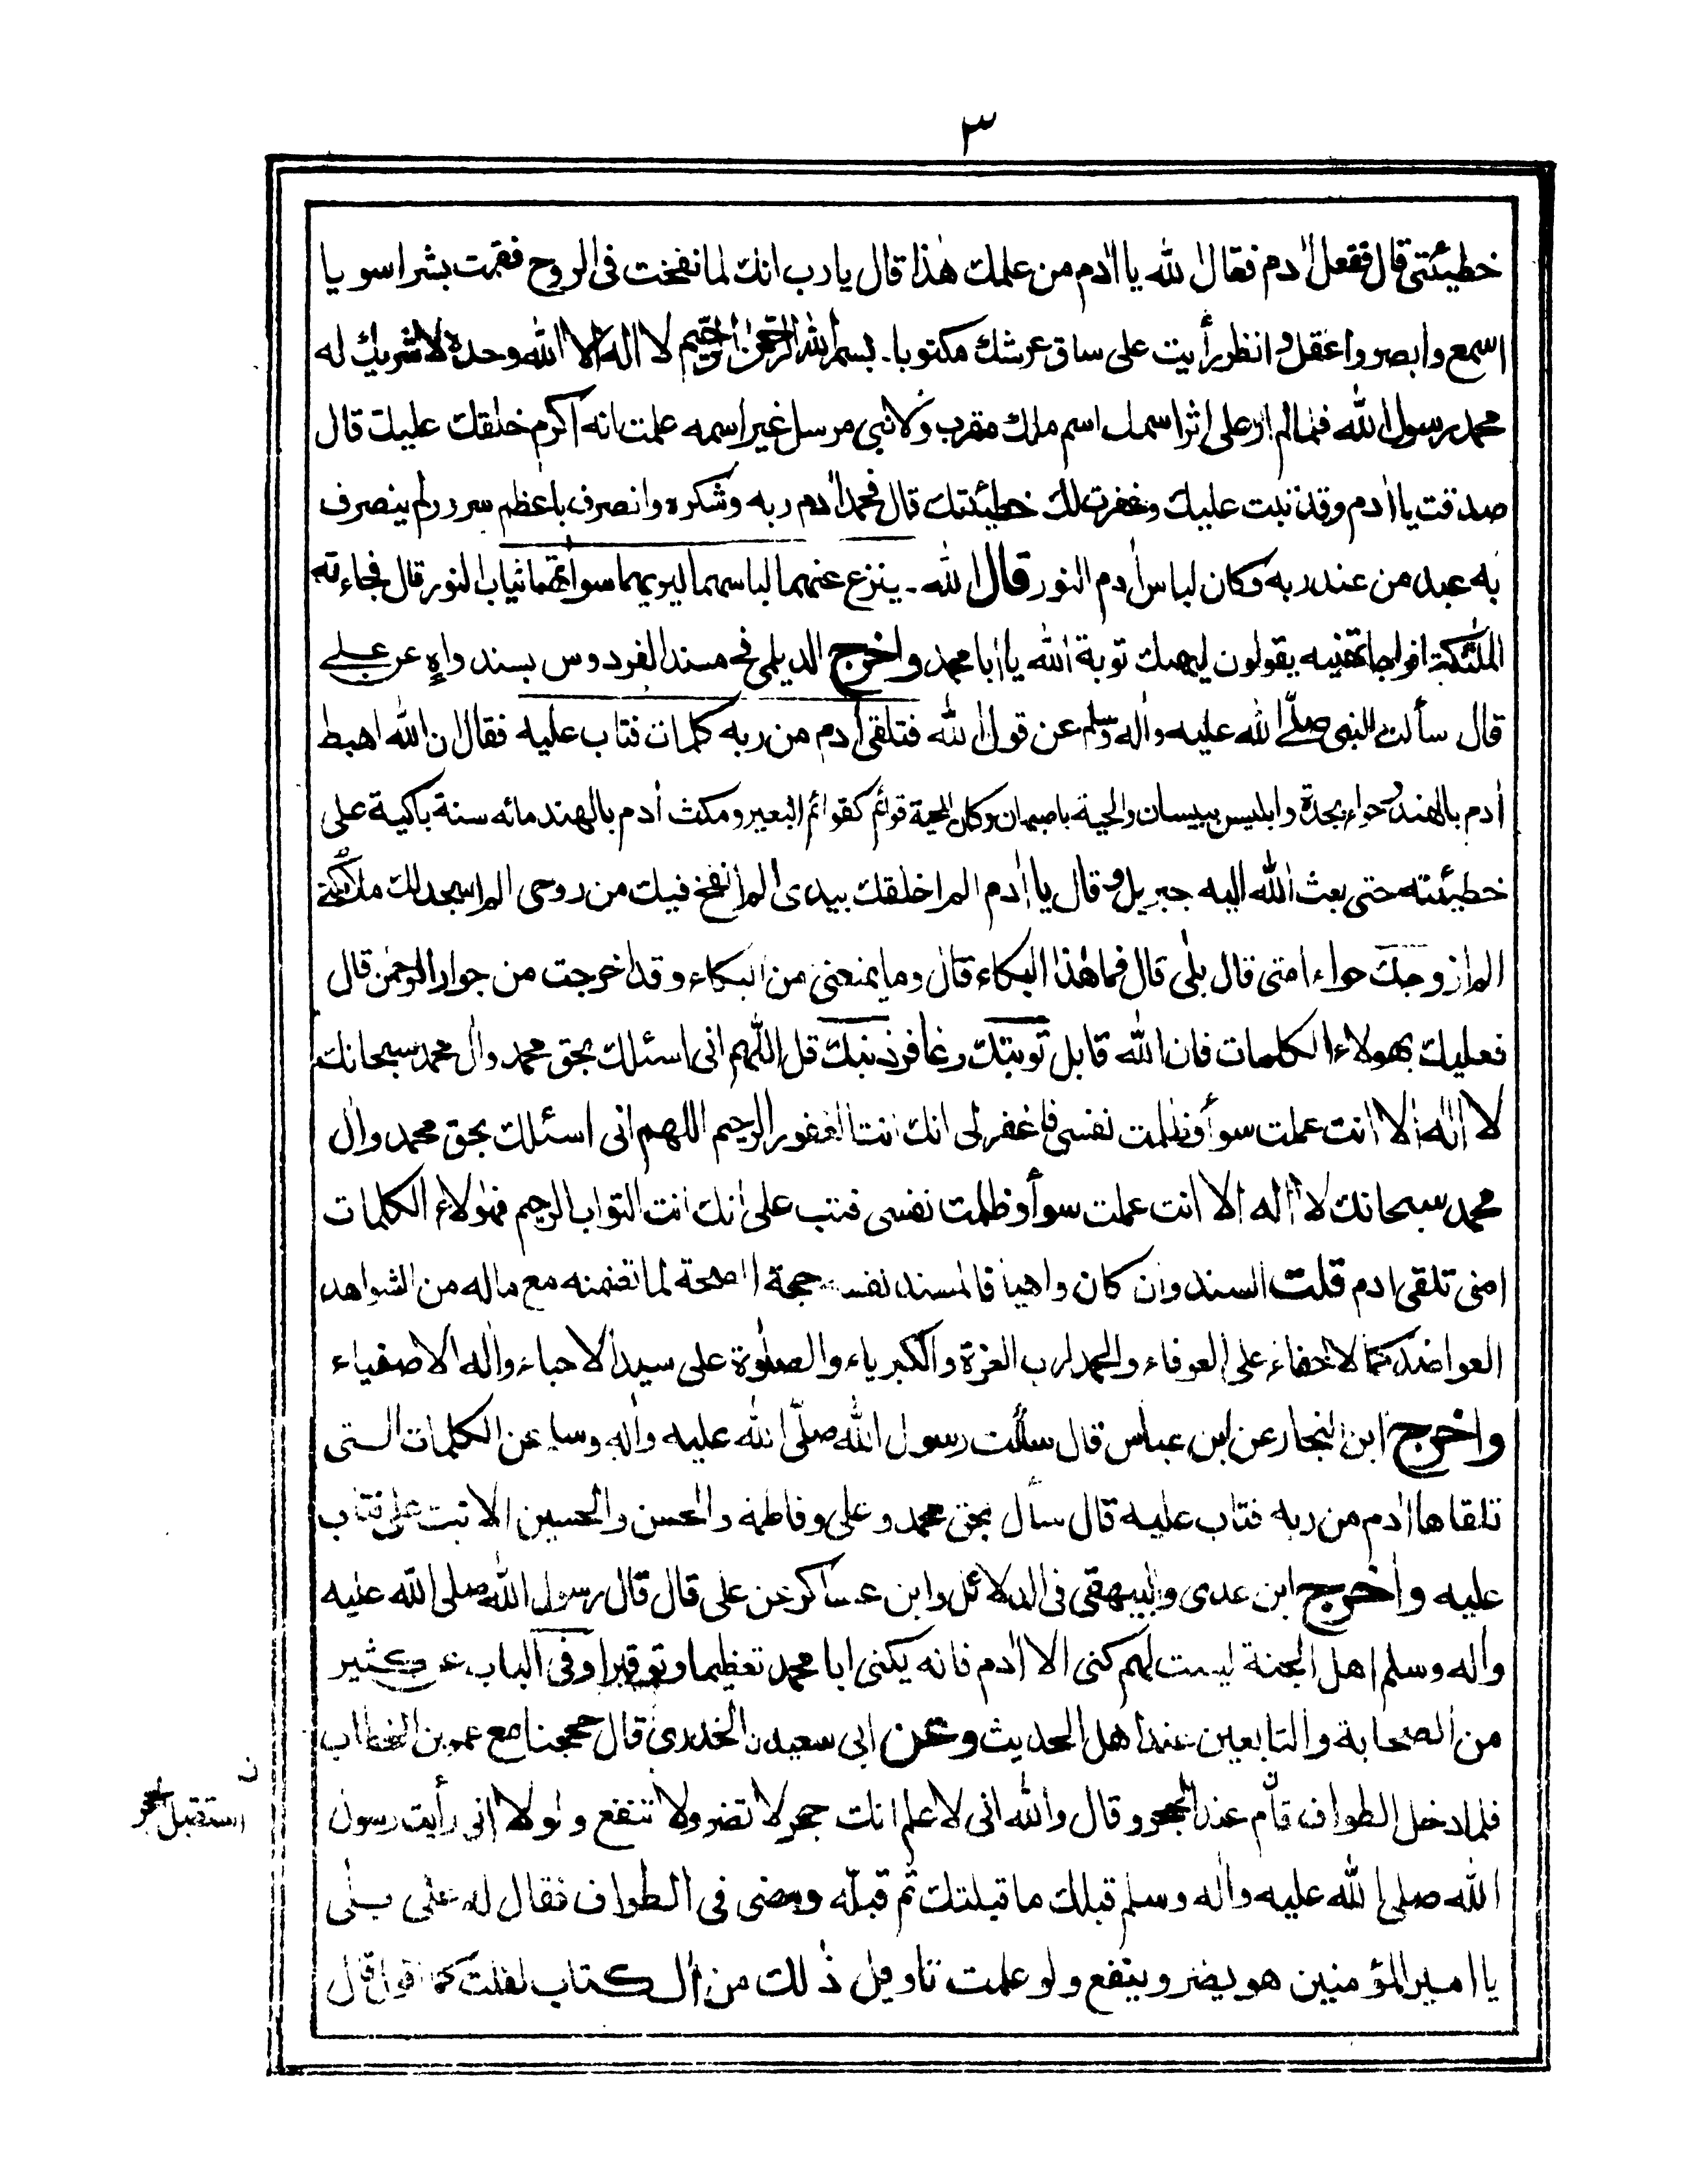 ٣
خطيئتى قال ففعل اٰدم فقال الله يا اٰدم من علمك هٰذا قال يا رب انك لما نفخت فى الروح فقمت بشرا سويا
اسمع وابصر واعقل وانظر رأيت على ساق عرشك مكتوبا۔ بسم الله الرحمٰن الرحيم لا اله الا الله وحده لا شريك له
محمد رسول الله فلما لم ار على اثر اسمك اسم ملك مقرب ولا نبى مرسل غير اسمه علمت انه اكرم خلقك عليك قال
صدقت يا اٰدم وقد تبت عليك وغفرت لك خطيئتك قال فحمد اٰدم ربه وشكره وانصرف باعظم سرور لم ينصرف
به عبد من عند ربه وكان لباس اٰدم النور قال الله۔ ينزع عنهما لباسهما ليريهما سواٰتهما ثياب النور قال فجاءته
الملٰئكة افواجا تهنيه يقولون ليهنك توبة الله يا ابا محمد واخرج الديلمى فى مسند الفردوس بسند واهٍ عن على
قال سألت النبى صلى الله عليه واٰله وسلم عن قول الله فتلقى اٰدم من ربه كلمات فتاب عليه فقال ان الله اهبط
اٰدم بالهند وحواء بجدة وابليس ببيسان والحية باصبهان وكان للحية قوائم كقوائم البعير ومكث اٰدم بالهند مائه سنة باكية على
خطيئته حتى بعث الله اليه جبريل وقال يا اٰدم الم اخلقك بيدى الم انفخ فيك من روحى الم اسجد لك ملٰئكتى
الم ازوجك حواء امتى قال بلٰى قال فما هٰذا البكاء قال وما يمنعنى من البكاء وقد اخرجت من جوار الرحمٰن قال
فعليك بهولاء الكلمات فان الله قابل توبتك وغافر ذنبك قل اللهم انى اسئلك بحق محمد واٰل محمد سبحانك
لا اله الا انت عملت سوأ وظلمت نفسى فاغفر لى انك انت الغفور الرحيم اللهم انى اسئلك بحق محمد واٰل
محمد سبحانك لا اله الا انت عملت سوأ وظلمت نفسى فتب على انك انت التواب الرحيم فهولاء الكلمات
امنى تلقى ادم قلت السند وان كان واهيا فالمسند نفسه حجة الصحة لما تضمنه مع ماله من الشواهد
العواضد كما لا خفاء على العرفاء والحمد لرب العزة والكبرياء والصلوٰة على سيد الاحباء واٰله الاصفياء
واخرج ابن النجار عن ابن عباس قال سألت رسول الله صلى الله عليه واٰله وسلم عن الكلمات التى
تلقاها اٰدم من ربه فتاب عليه قال سأل بحق محمد وعلى وفاطمة والحسن والحسين الا تبت على فتاب
عليه واخرج ابن عدى والبيهقى فى الدلائل وابن عساكر عن على قال قال رسول الله صلى الله عليه
واٰله وسلم اهل الجنة ليست لهم كنى الا اٰدم فانه يكنى ابا محمد تعظيما وتوقيرا وفى الباب عن كثير
من الصحابة والتابعين عند اهل الحديث وعن ابى سعيد ن الخدرى قال حججنا مع عمر بن الخطاب
فلما دخل الطواف قام عند الحجر وقال والله انى لاعلم انك حجر لا تضر ولا تنفع ولولا انى رأيت رسول
ن
استقبل الحجر
الله صلى الله عليه واٰله وسلم قبلك ما قبلتك ثم قبله ومضى فى الطواف فقال له على بلٰى
يا امير المؤمنين هو يضر وينفع ولو علمت تاويل ذٰلك من الكتاب لقلت كما اقول قال